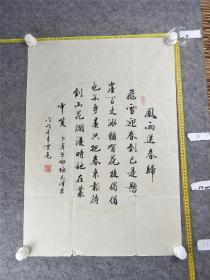 風雨送春歸
飛雪迎春到已是懸
崖百丈冰猶有花枝俏俏
也不爭春只把春來報待
到山花爛漫時她在叢
中笑 卜算子咏梅毛澤東
戊戌年